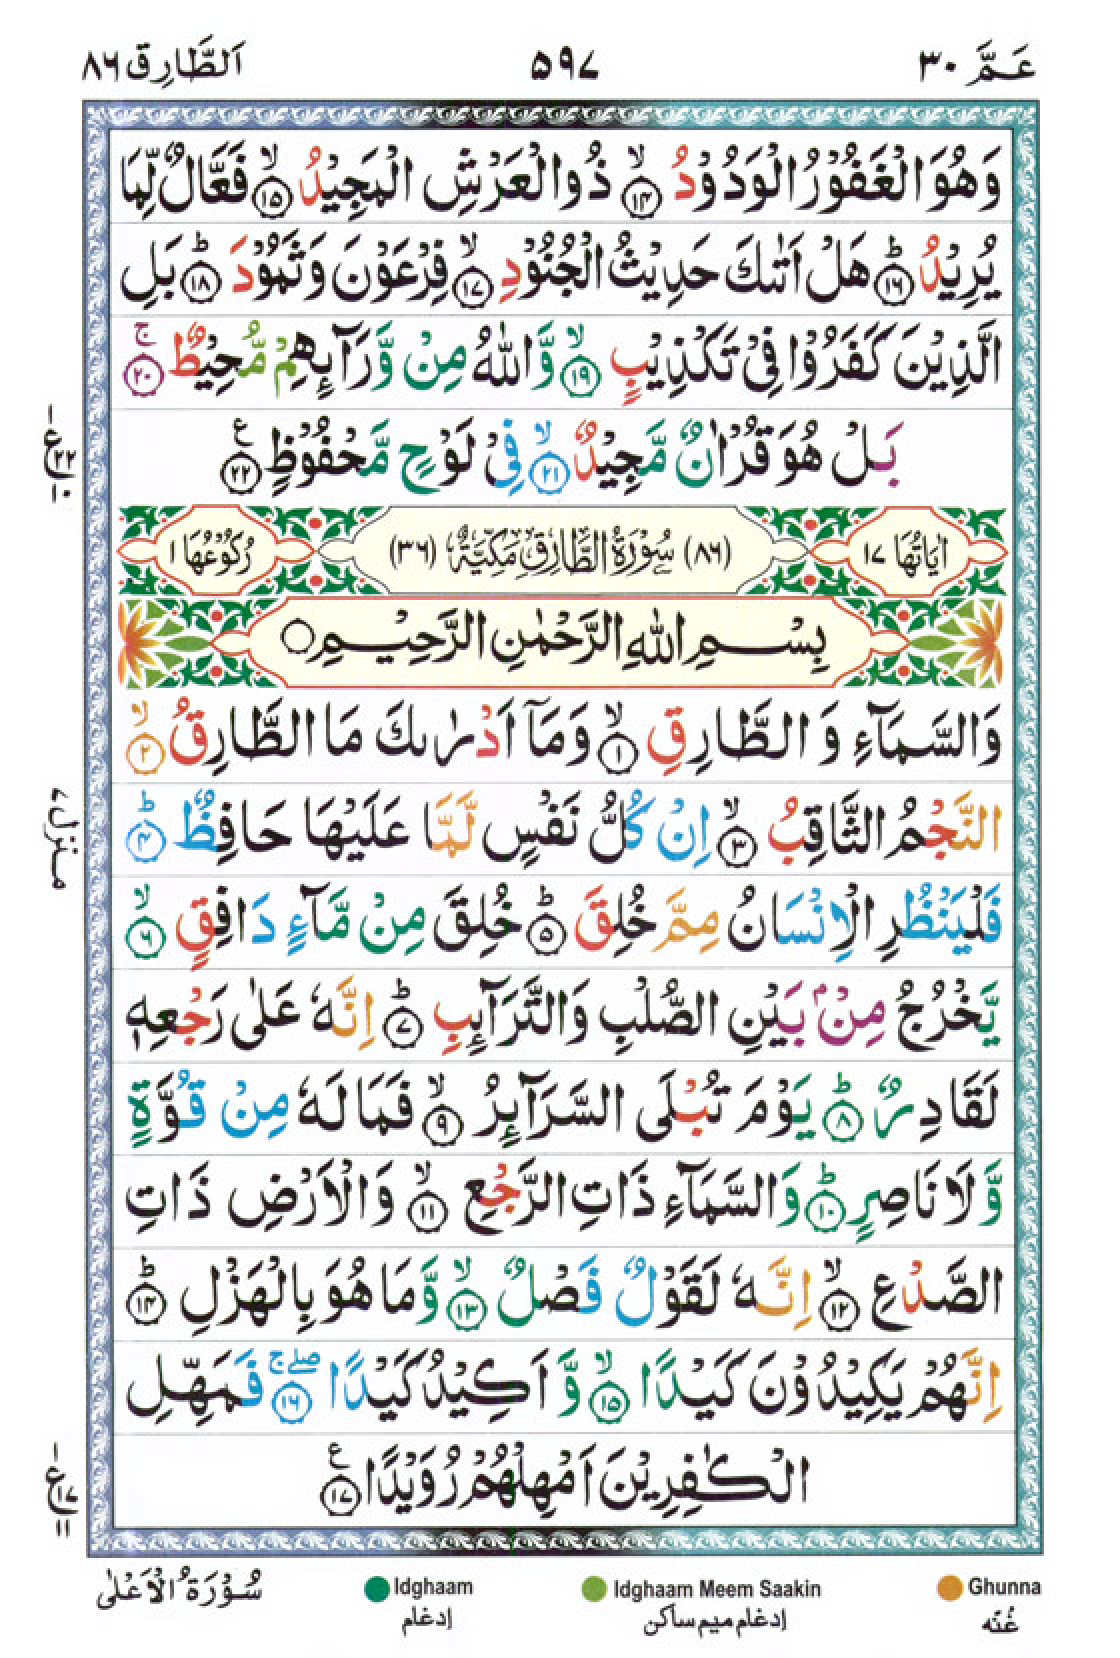 عَمَّ ٣٠
٥٩٧
اَلطَّارِق ٨٦
وَهُوَ الْغَفُوْرُ الْوَدُوْدُ ۙ﴿١٤﴾ ذُو الْعَرْشِ الْمَجِيْدُ ۙ﴿١٥﴾ فَعَّالٌ لِّمَا
يُرِيْدُ ؕ﴿١٦﴾ هَلْ اَتٰىكَ حَدِيْثُ الْجُنُوْدِ ۙ﴿١٧﴾ فِرْعَوْنَ وَثَمُوْدَ ؕ﴿١٨﴾ بَلِ
الَّذِيْنَ كَفَرُوْا فِىْ تَكْذِيْبٍ ۙ﴿١٩﴾ وَّاللّٰهُ مِنْ وَّرَآئِهِمْ مُّحِيْطٌ ۚ﴿٢٠﴾
بَلْ هُوَ قُرْاٰنٌ مَّجِيْدٌ ۙ﴿٢١﴾ فِىْ لَوْحٍ مَّحْفُوْظٍ ﴿٢٢﴾ ع
ع ٢٢ ١٠
اٰيَاتُهَا ١٧
(٨٦) سُوْرَةُ الطَّارِقِ مَكِّيَّةٌ (٣٦)
رُكُوْعُهَا ١
بِسْمِ اللّٰهِ الرَّحْمٰنِ الرَّحِيْمِ ○
وَالسَّمَآءِ وَ الطَّارِقِ ۙ﴿١﴾ وَمَآ اَدْرٰىكَ مَا الطَّارِقُ ۙ﴿٢﴾
النَّجْمُ الثَّاقِبُ ۙ﴿٣﴾ اِنْ كُلُّ نَفْسٍ لَّمَّا عَلَيْهَا حَافِظٌ ؕ﴿٤﴾
منزل ٧
فَلْيَنْظُرِ الْاِنْسَانُ مِمَّ خُلِقَ ؕ﴿٥﴾ خُلِقَ مِنْ مَّآءٍ دَافِقٍ ۙ﴿٦﴾
يَّخْرُجُ مِنْۢ بَيْنِ الصُّلْبِ وَالتَّرَآئِبِ ؕ﴿٧﴾ اِنَّهٗ عَلٰى رَجْعِهٖ
لَقَادِرٌ ؕ﴿٨﴾ يَوْمَ تُبْلَى السَّرَآئِرُ ۙ﴿٩﴾ فَمَا لَهٗ مِنْ قُوَّةٍ
وَّلَا نَاصِرٍ ؕ﴿١٠﴾ وَالسَّمَآءِ ذَاتِ الرَّجْعِ ۙ﴿١١﴾ وَالْاَرْضِ ذَاتِ
الصَّدْعِ ۙ﴿١٢﴾ اِنَّهٗ لَقَوْلٌ فَصْلٌ ۙ﴿١٣﴾ وَّمَا هُوَ بِالْهَزْلِ ؕ﴿١٤﴾
اِنَّهُمْ يَكِيْدُوْنَ كَيْدًا ۙ﴿١٥﴾ وَّ اَكِيْدُ كَيْدًا ۖۚ﴿١٦﴾ فَمَهِّلِ
الْكٰفِرِيْنَ اَمْهِلْهُمْ رُوَيْدًا ﴿١٧﴾ ع
ع ١٧ ١١
Ghunna
غُنّه
Idghaam Meem Saakin
إدغام ميم ساكن
Idghaam
إدغام
سُوْرَةُ الْاَعْلٰى